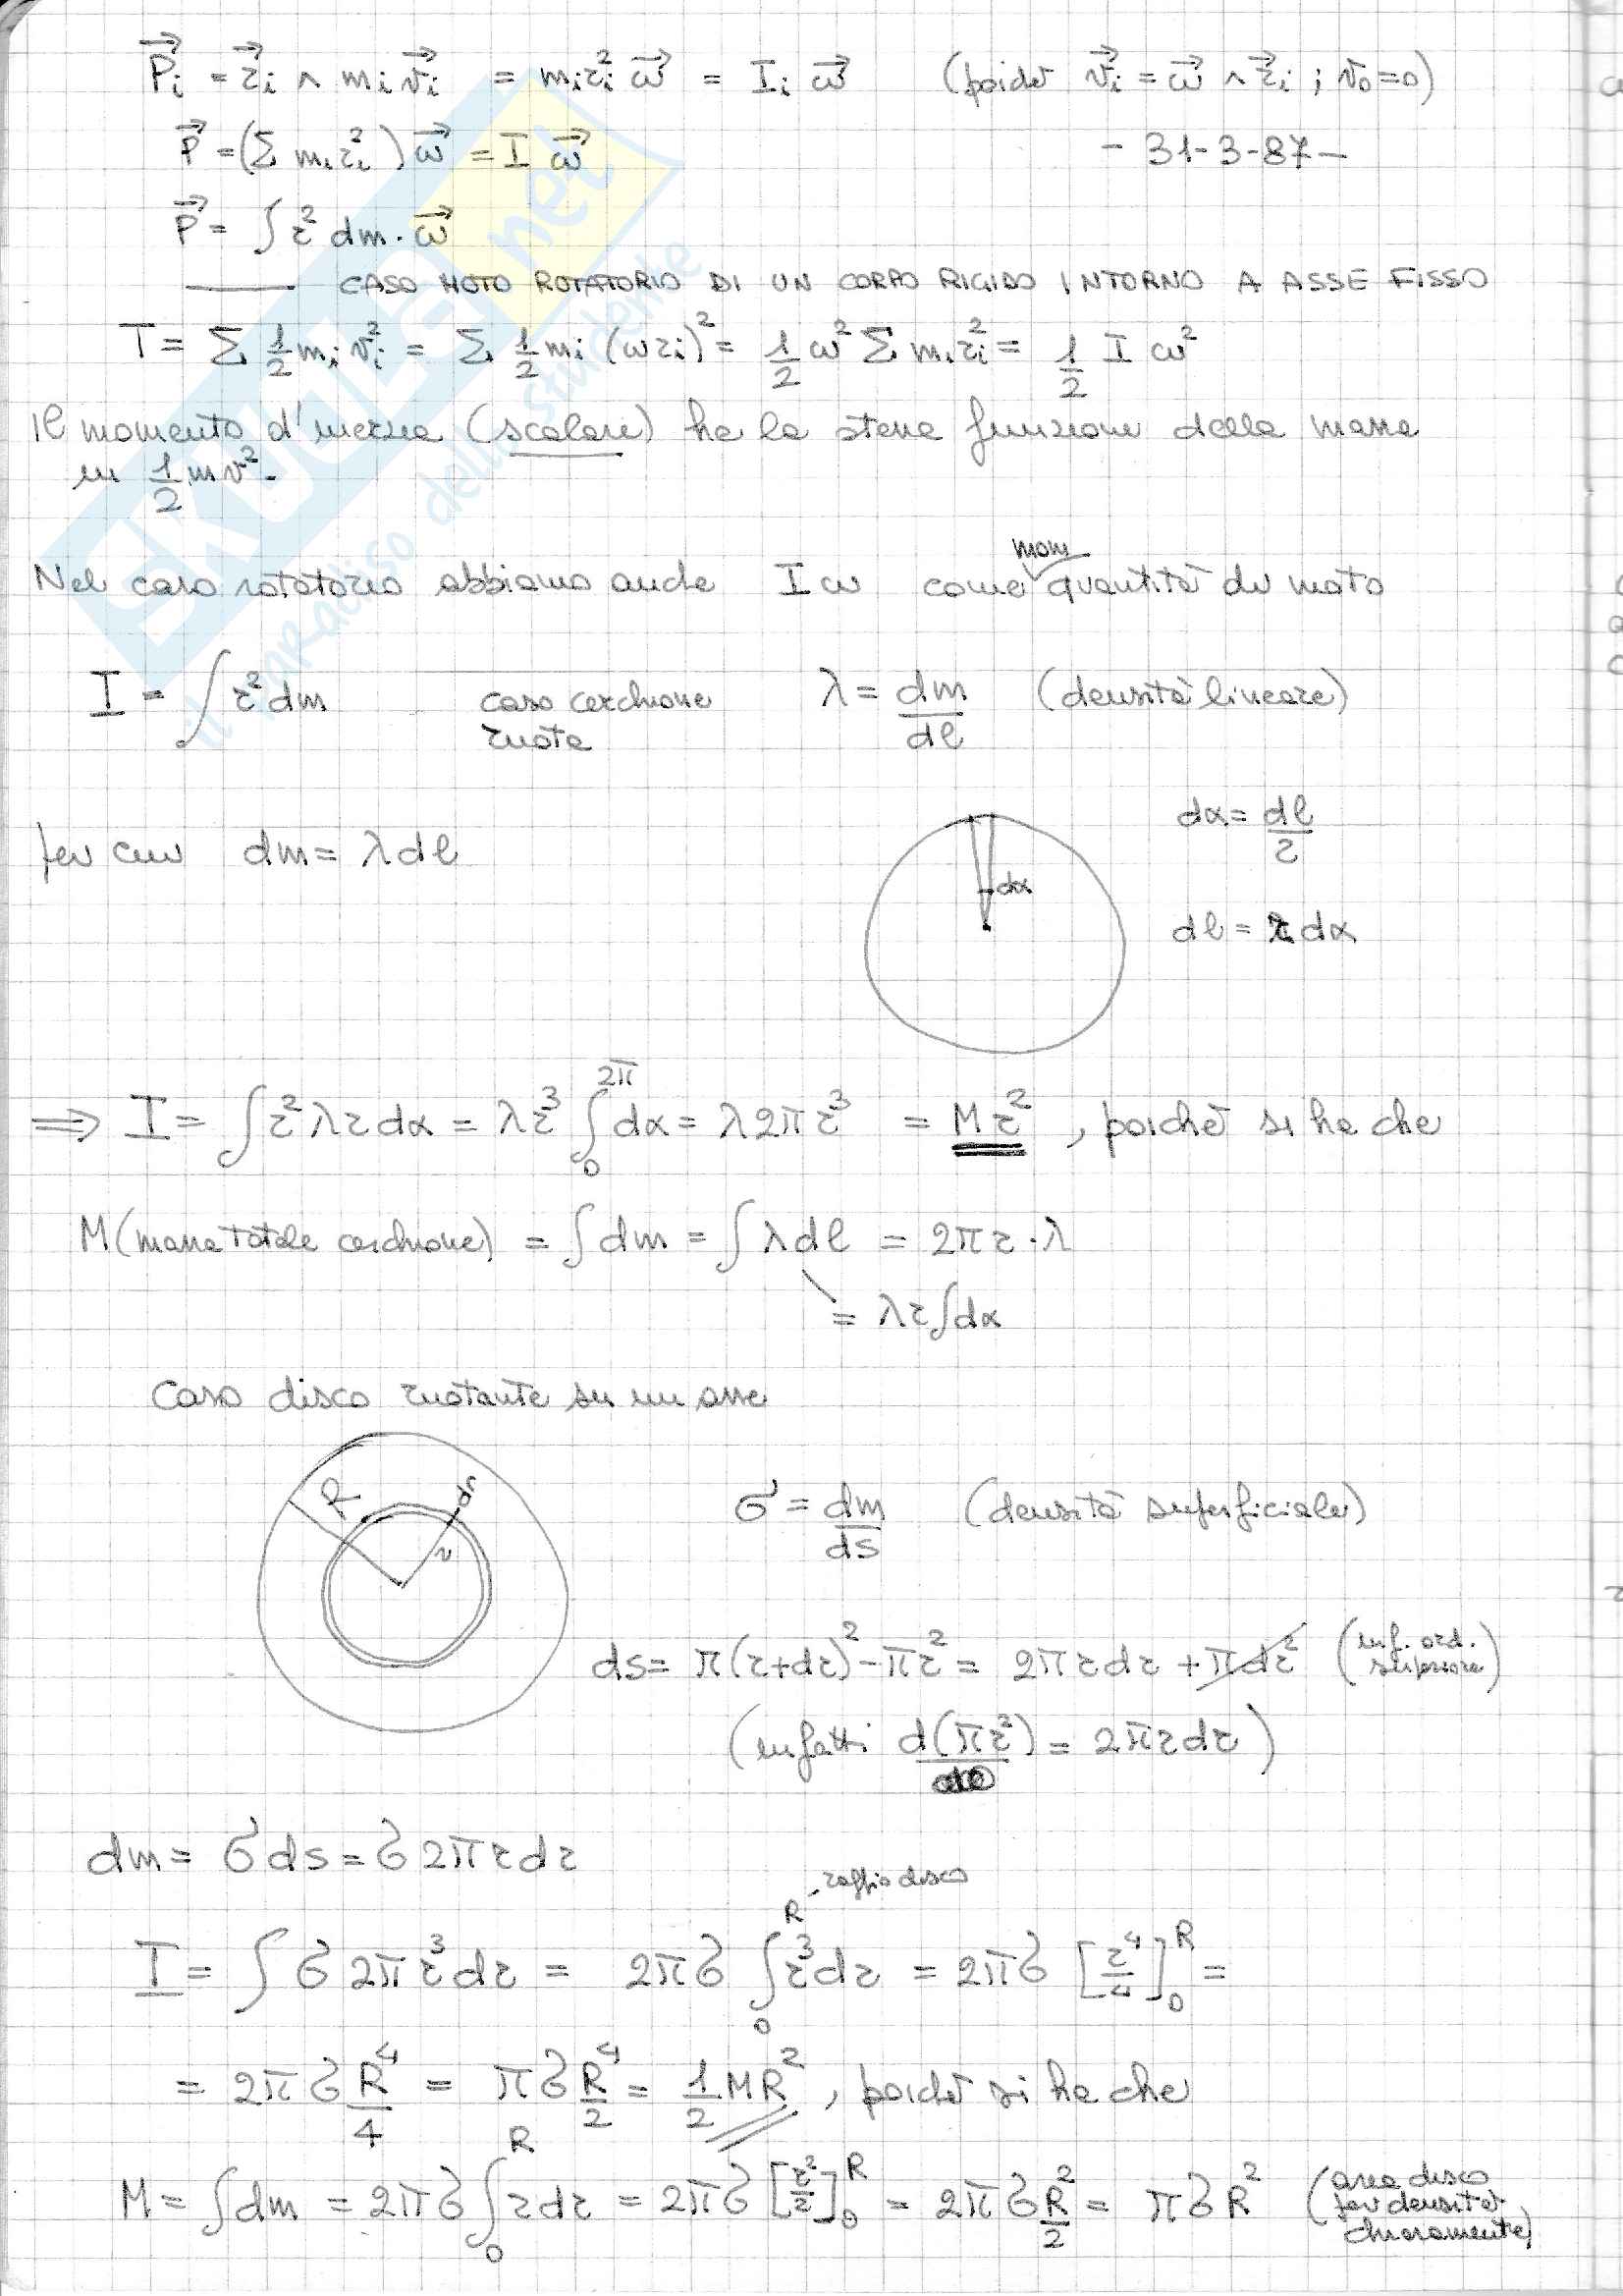 P⃗i = r⃗i ∧ mi v⃗i = mi ri² ω⃗ = Ii ω⃗ (poiché v⃗i = ω⃗ ∧ r⃗i ; v0=0)
P⃗ = (Σ mi ri²) ω⃗ = I ω⃗ - 31-3-87 -
P⃗ = ∫ r² dm · ω⃗
CASO MOTO ROTATORIO DI UN CORPO RIGIDO INTORNO A ASSE FISSO
T = Σ 1/2 mi vi² = Σ 1/2 mi (ω ri)² = 1/2 ω² Σ mi ri² = 1/2 I ω²
Il momento d'inerzia (scalare) ha la stessa funzione della massa
in 1/2 mv².
mom
Nel caso rotatorio abbiamo anche I ω come quantità di moto
I = ∫ r² dm caso cerchione λ = dm/dl (densità lineare)
ruota
per cui dm = λ dl
dα = dl/r
dα
dl = r dα
⇒ I = ∫ r² λ r dα = λ r³ ∫₀^2π dα = λ 2π r³ = M r² , poiché si ha che
M (massa totale cerchione) = ∫ dm = ∫ λ dl = 2π r · λ
= λ r ∫ dα
Caso disco ruotante su un asse
R r dr
σ = dm/ds (densità superficiale)
ds = π (r+dr)² - π r² = 2π r dr + π dr² (inf. ord. superiore)
(infatti d(π r²) = 2π r dr)
dm = σ ds = σ 2π r dr
raggio disco
I = ∫ σ 2π r³ dr = 2π σ ∫₀^R r³ dr = 2π σ [r⁴/4]₀^R =
= 2π σ R⁴/4 = π σ R⁴/2 = 1/2 M R² , poiché si ha che
M = ∫ dm = 2π σ ∫₀^R r dr = 2π σ [r²/2]₀^R = 2π σ R²/2 = π σ R² (area disco
per densità
chiaramente)